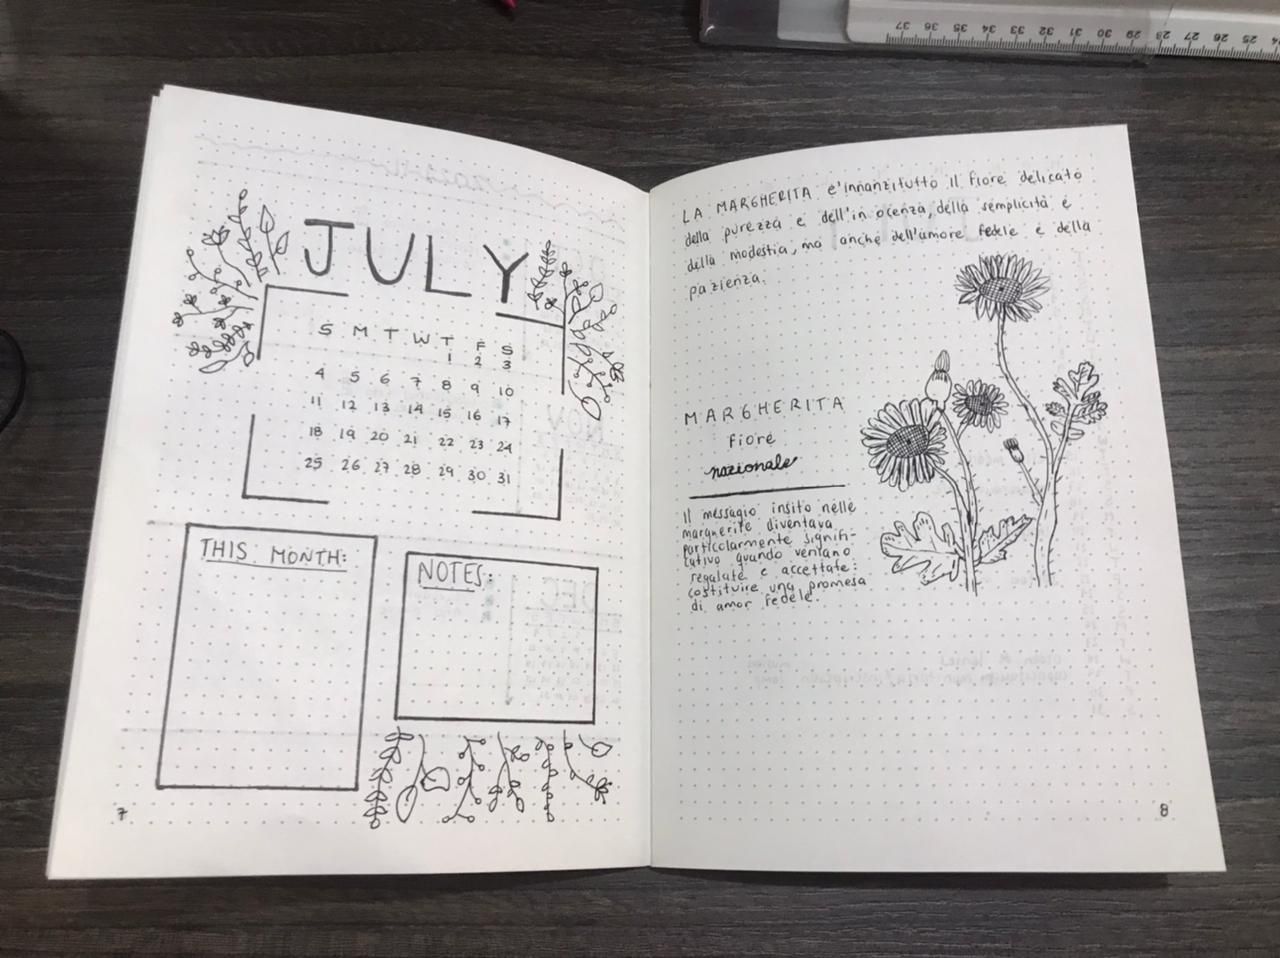 JULY
S M T W T F S
1 2 3
4 5 6 7 8 9 10
11 12 13 14 15 16 17
18 19 20 21 22 23 24
25 26 27 28 29 30 31
THIS MONTH:
NOTES:
7
LA MARGHERITA e' innanzitutto il fiore delicato
della purezza e dell'in ocenza, della semplicità e
della modestia, ma anche dell'amore fedele e della
pazienza.
MARGHERITA
Fiore
nazionale
Il messagio insito nelle
margherite diventava
particolarmente signifi-
cativo quando venìano
regalate e accettate:
costituire una promesa
di amor fedele.
8
37 36 35 34 33 32 31 30 29 28 27 26 25 24
NOV
DEC